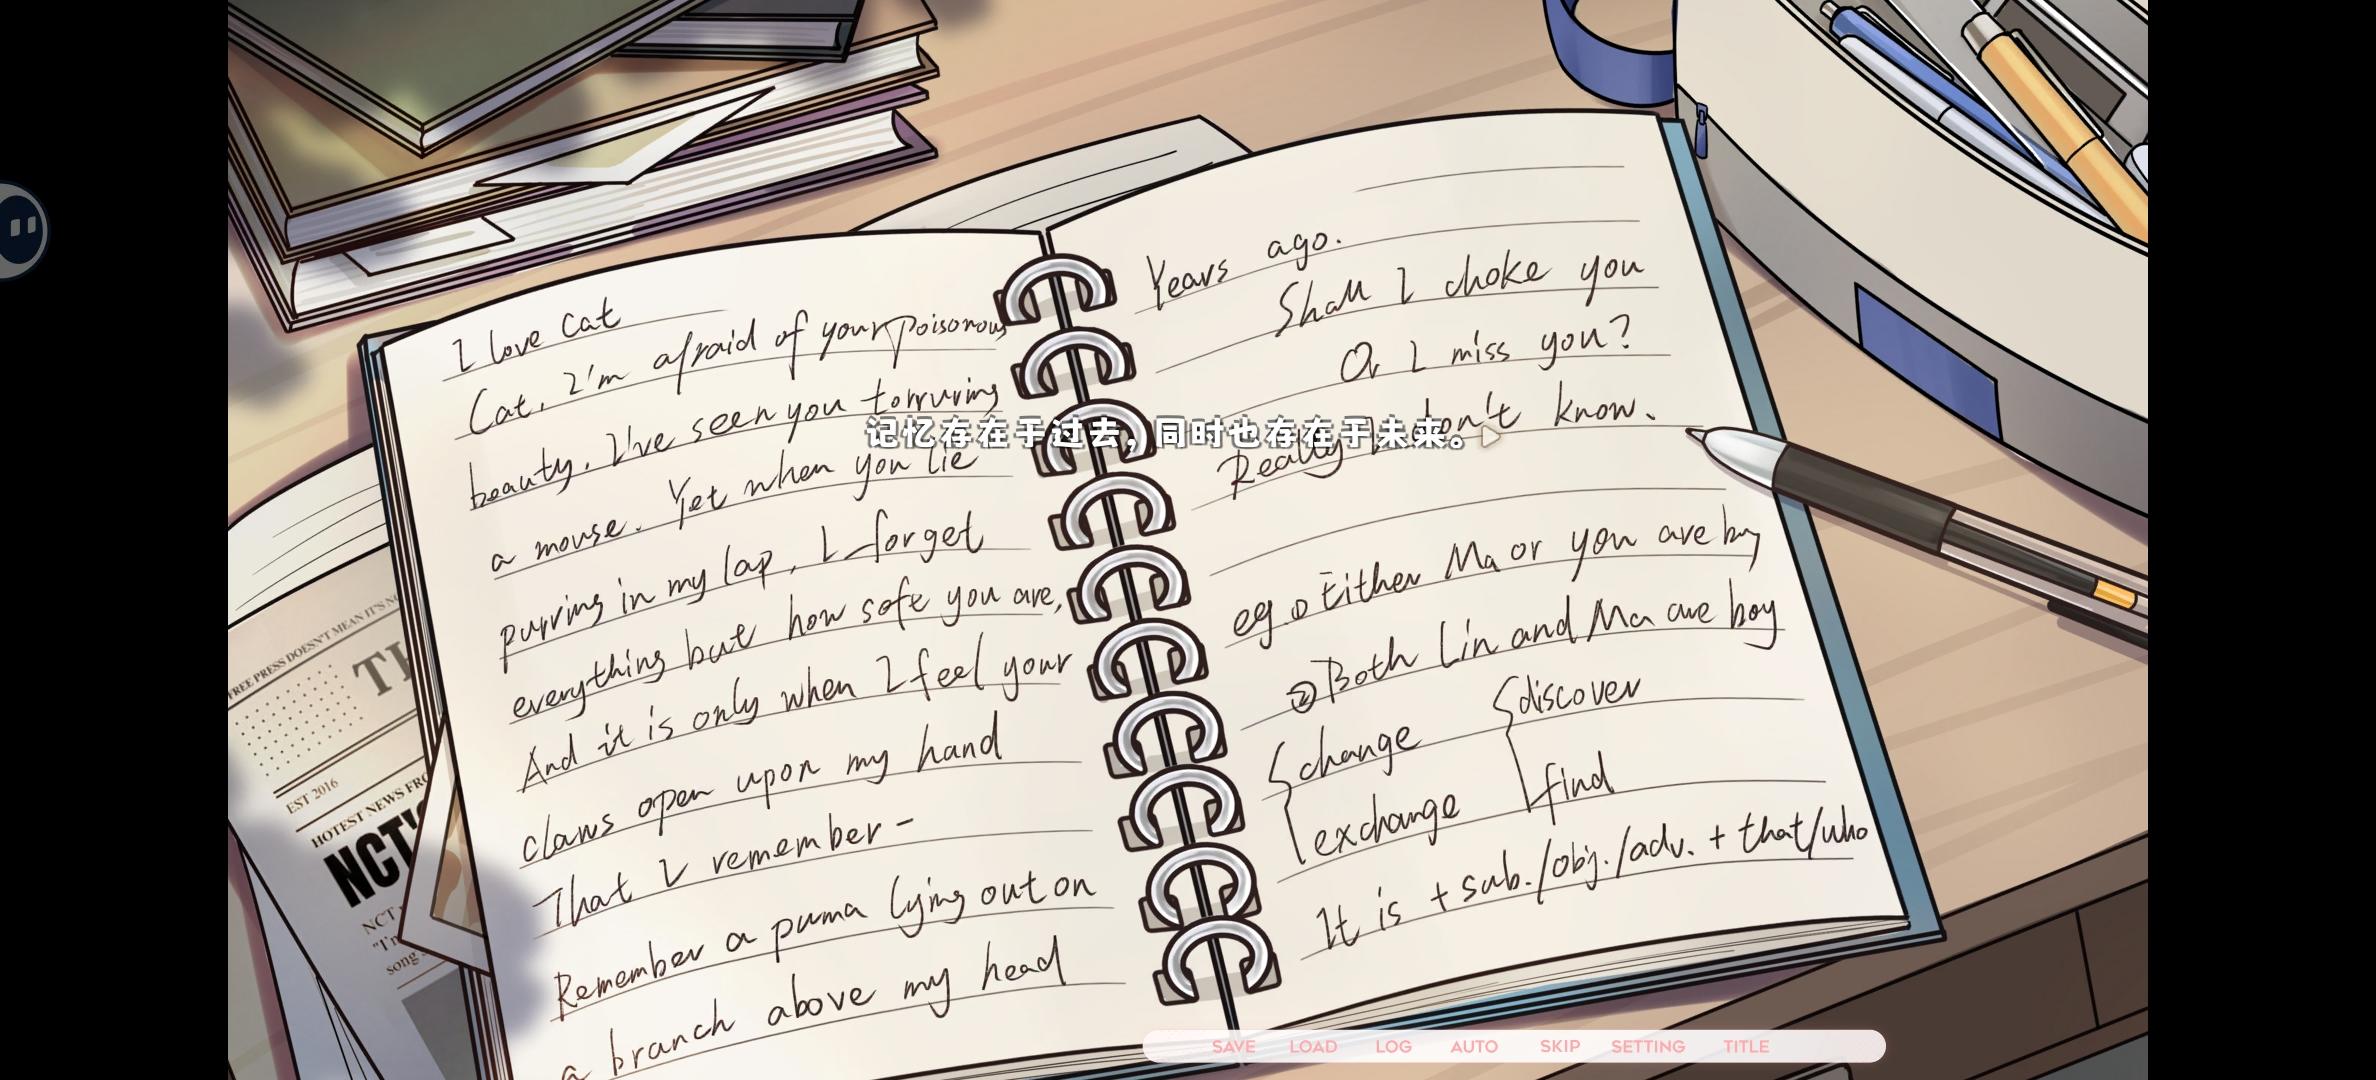 I love Cat
Cat, I'm afraid of your poisonous
beauty. I've seen you torruring
a mouse. Yet when you lie
purring in my lap, I forget
everything but how sofe you are,
And it is only when I feel your
claws open upon my hand
That I remember-
Remember a puma lying out on
a branch above my head
Years ago.
Shall I choke you
Or I miss you?
Really I don't know.
eg ① Either Ma or you are boy
② Both Lin and Ma are boy
change
exchange
discover
find
It is + sub./obj./adv. + that/who
记忆存在于过去，同时也存在于未来。
FREE PRESS DOESN'T MEAN IT'S
EST 2016
HOTEST NEWS
NCT'
NCT
"I'm
song
SAVE LOAD LOG AUTO SKIP SETTING TITLE